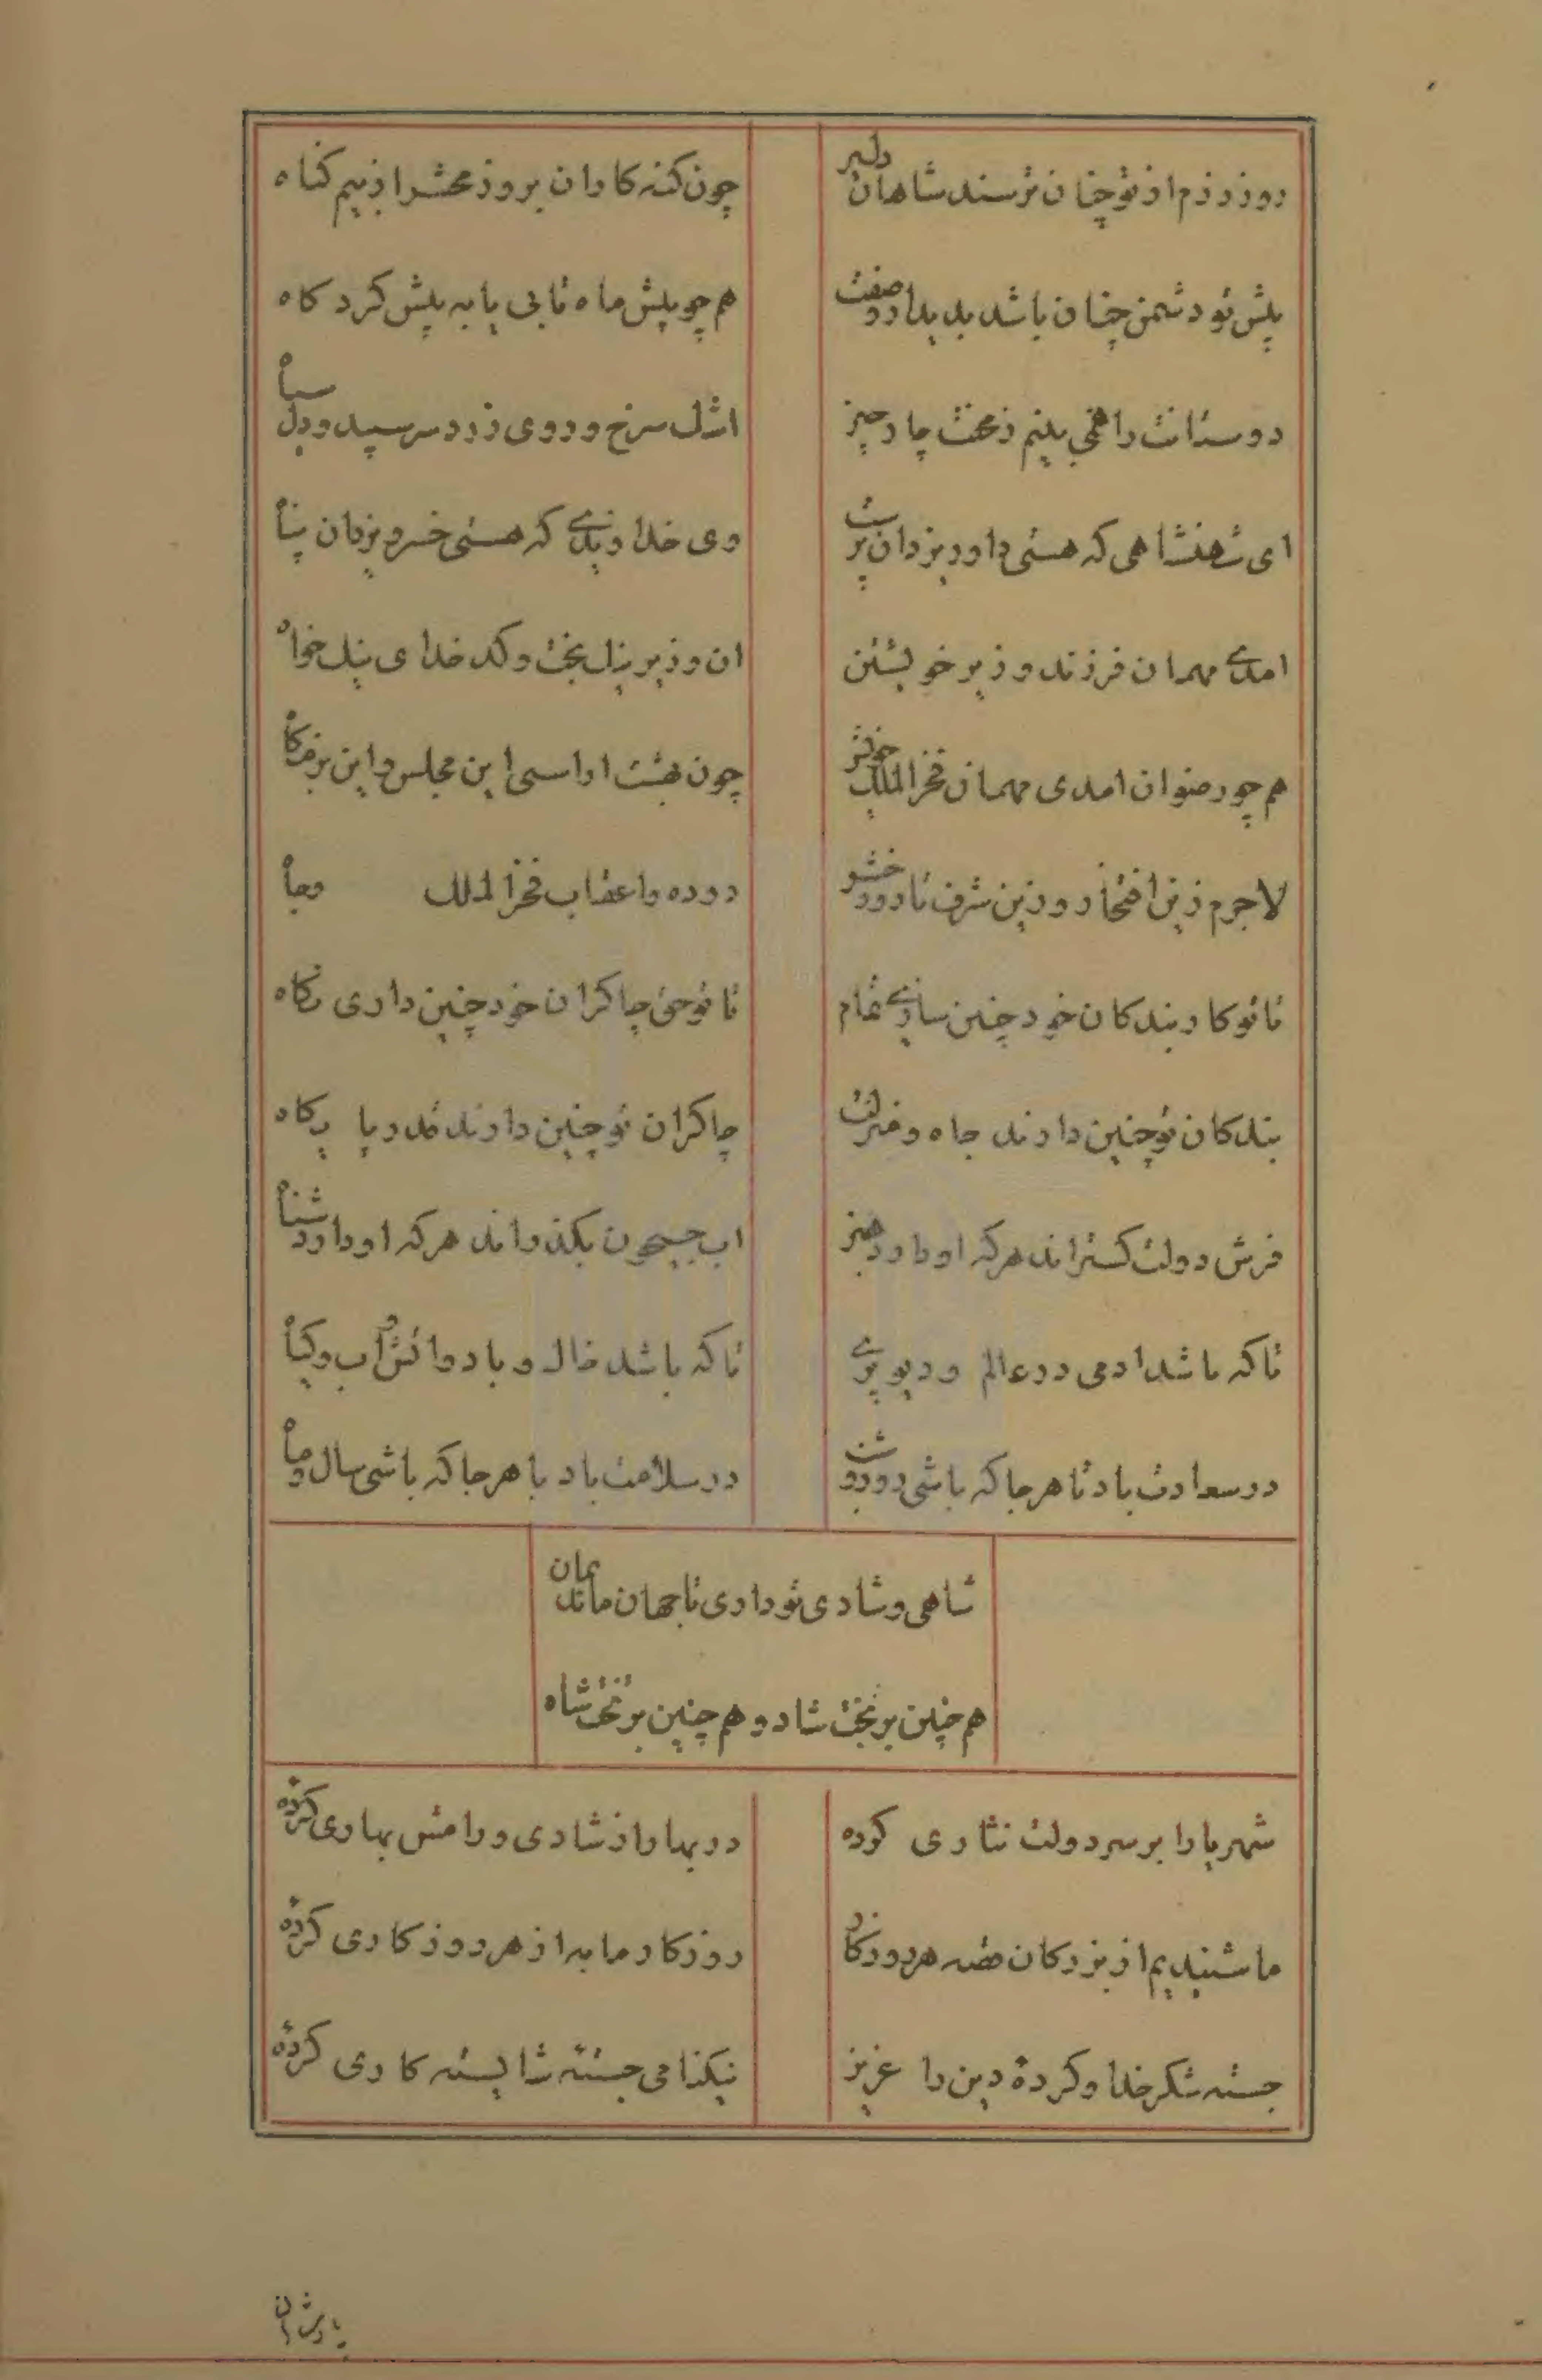 روز رزم از تو چنان ترسند شاهان دلیر
چون کنه کاران بروز محشر از بیم کناه
پیش تو دشمن چنان باشد بدیدار و صفت
هم چو پیش ماه تابی یا به پیش کرد کاه
دوستانت را همی بینم ز بخت چار چیز
اشک سرخ و روی زرد سر سپید و دل سیاه
ای شهنشاهی که هستی داور یزدان پرست
وی خداوندی که هستی خسرو یزدان پناه
امدی مهمان فرزند وزیر خویشتن
ان وزیر نیک بخت و کدخدای نیک خواه
هم چو رضوان امدی مهمان فخر الملک
چون بهشت اراستی این مجلس و این بزمکاه
لاجرم زین افتخار و زین شرف تا روز حشر
دوده و اعقاب فخر الملک
تا تو کار بندکان خود چنین سازی تمام
تا تو حق چاکران خود چنین داری نکاه
بندکان تو چنین دارند جاه و منزلت
چاکران تو چنین دارند قدر و پایکاه
فرش دولت کستراند هرکه او دارد هنر
اب جیحون بکذراند هرکه او داند شناه
تا که باشد ادمی در عالم و دیو پری
تا که باشد خاک و باد و اتش و آب و کیاه
در سعادت باد تا هر جا که باشی روز و شب
در سلامت باد با هر جا که باشی سال و ماه
شاهی و شادی تو داری تا جهان ماند بمان
هم چنین بر تخت شاد و هم چنین بر تخت شاه
شهریارا بر سر دولت نثاری کرده
در بهار از شادی و رامش بهاری کرده
ما شنیدیم از بزرکان قصه هر روزکار
روزکار ما به از هر روزکاری کرده
جسته شکر خدا و کردهٔ دین را عزیز
نیکنامی جستهٔ شایسته کاری کردهٔ